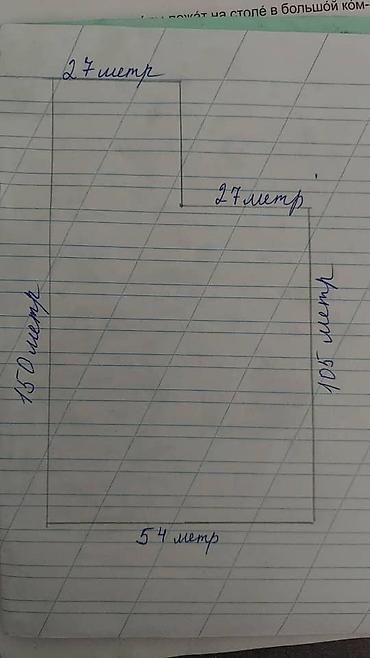 лежа́т на столе́ в большо́й ко́м-
27 метр
27 метр
150 метр
105 метр
54 метр